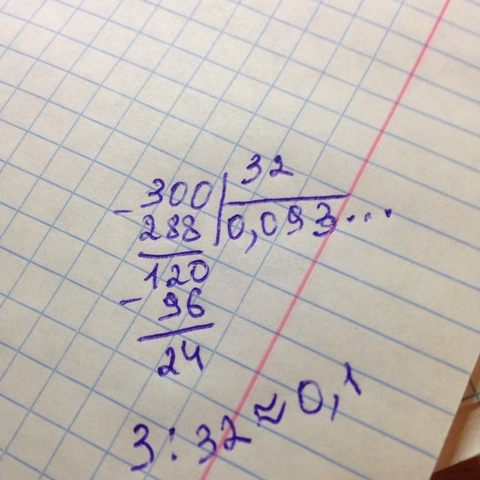 -300 | 32
288 | 0,093...
120
- 96
24
3 : 32 ≈ 0,1